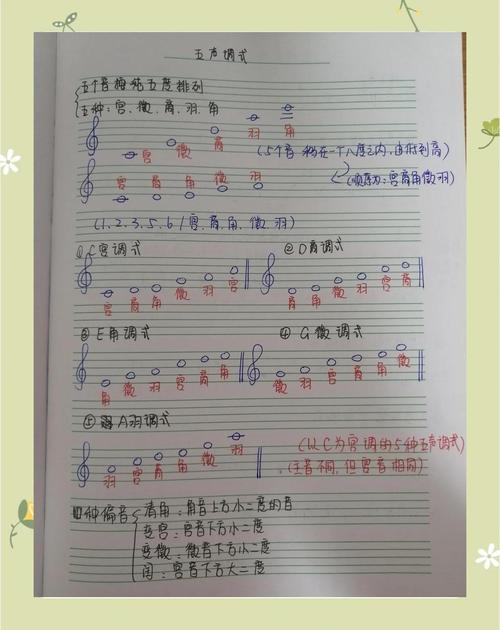 五声调式
五个音按纯五度排列
五种：宫、徵、商、羽、角
宫 徵 商 羽 角
(5个音 移在一个八度之内，由低到高)
宫 商 角 徵 羽
(顺序为：宫商角徵羽)
(1、2、3、5、6 / 宫、商、角、徵、羽)
①C宫调式 ②D商调式
宫 商 角 徵 羽 宫 商 角 徵 羽 宫 商
③E角调式 ④G徵调式
角 徵 羽 宫 商 角 徵 羽 宫 商 角 徵
⑤A羽调式
羽 宫 商 角 徵 羽
(以C为宫调的5种五声调式)
(主音不同，但宫音相同)
四种偏音
清角：角音上方小二度的音
变宫：宫音下方小二度
变徵：徵音下方小二度
闰：宫音下方大二度